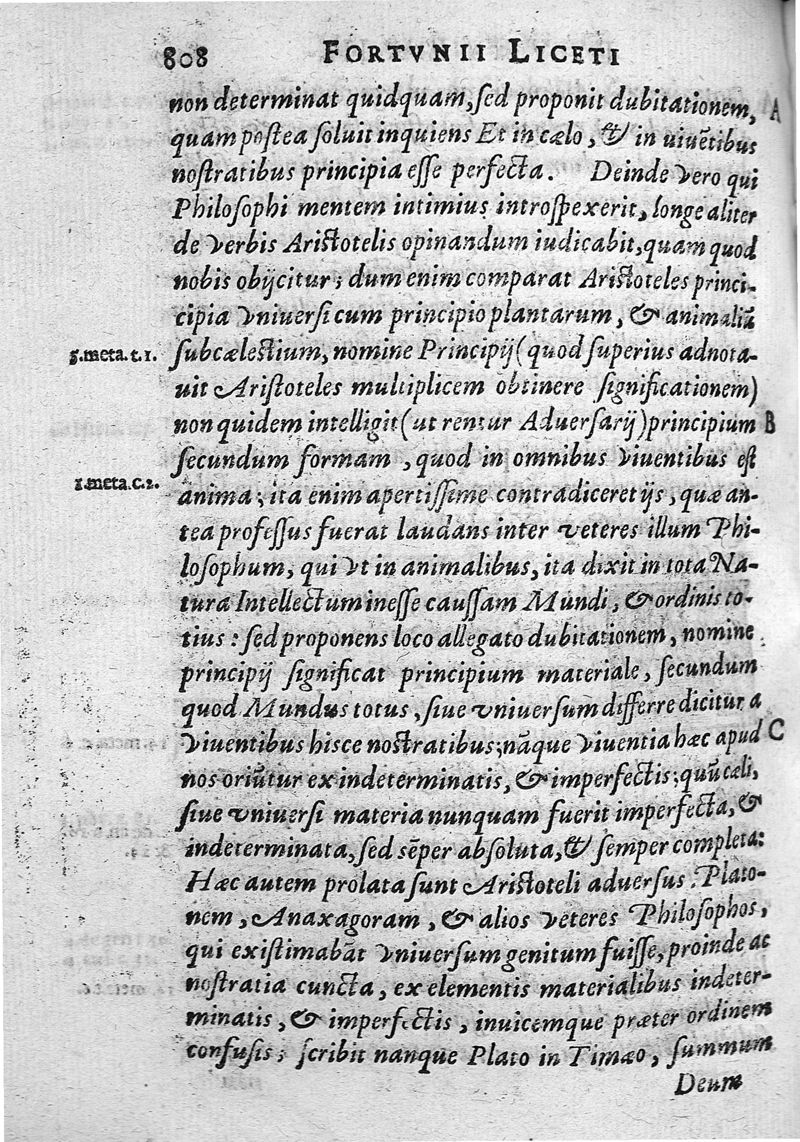 808 FORTVNII LICETI
non determinat quidquam, sed proponit dubitationem, A
quam postea soluit inquiens Et in cælo, & in viuẽtibus
nostratibus principia esse perfecta. Deinde vero qui
Philosophi mentem intimius introspexerit, longe aliter
de verbis Aristotelis opinandum iudicabit, quam quod
nobis obijcitur; dum enim comparat Aristoteles princi-
cipia vniuersi cum principio plantarum, & animaliũ
5.meta.t.1. subcælestium, nomine Principij (quod superius adnota-
uit Aristoteles multiplicem obtinere significationem)
non quidem intelligit (ut rentur Aduersarij) principium B
secundum formam, quod in omnibus viuentibus est
1.meta.c.2. anima; ita enim apertissime contradiceret ijs, quæ an-
tea professus fuerat laudans inter veteres illum Phi-
losophum, qui vt in animalibus, ita dixit in tota Na-
tura Intellectum inesse caussam Mundi, & ordinis to-
tius: sed proponens loco allegato dubitationem, nomine
principij significat principium materiale, secundum
quod Mundus totus, siue vniuersum differre dicitur a
viuentibus hisce nostratibus; nãque viuentia hæc apud C
nos oriũtur ex indeterminatis, & imperfectis; quũ cæli,
siue vniuersi materia nunquam fuerit imperfecta, &
indeterminata, sed sẽper absoluta, & semper completa:
Hæc autem prolata sunt Aristoteli aduersus Plato-
nem, Anaxagoram, & alios veteres Philosophos,
qui existimabãt vniuersum genitum fuisse, proinde ac
nostratia cuncta, ex elementis materialibus indeter-
minatis, & imperfectis, inuicemque præter ordinem
confusis; scribit nanque Plato in Timæo, summum
Deum